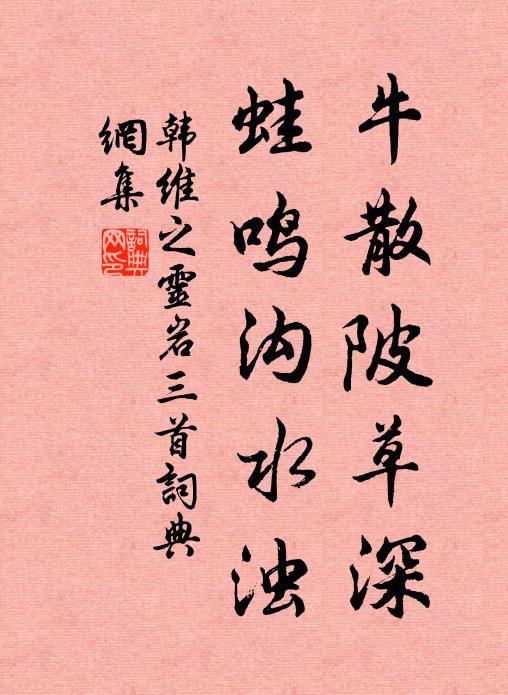 牛散陂草深
蛙鸣沟水浊
韩维之靈岩三首詞典
網集
詞典網印